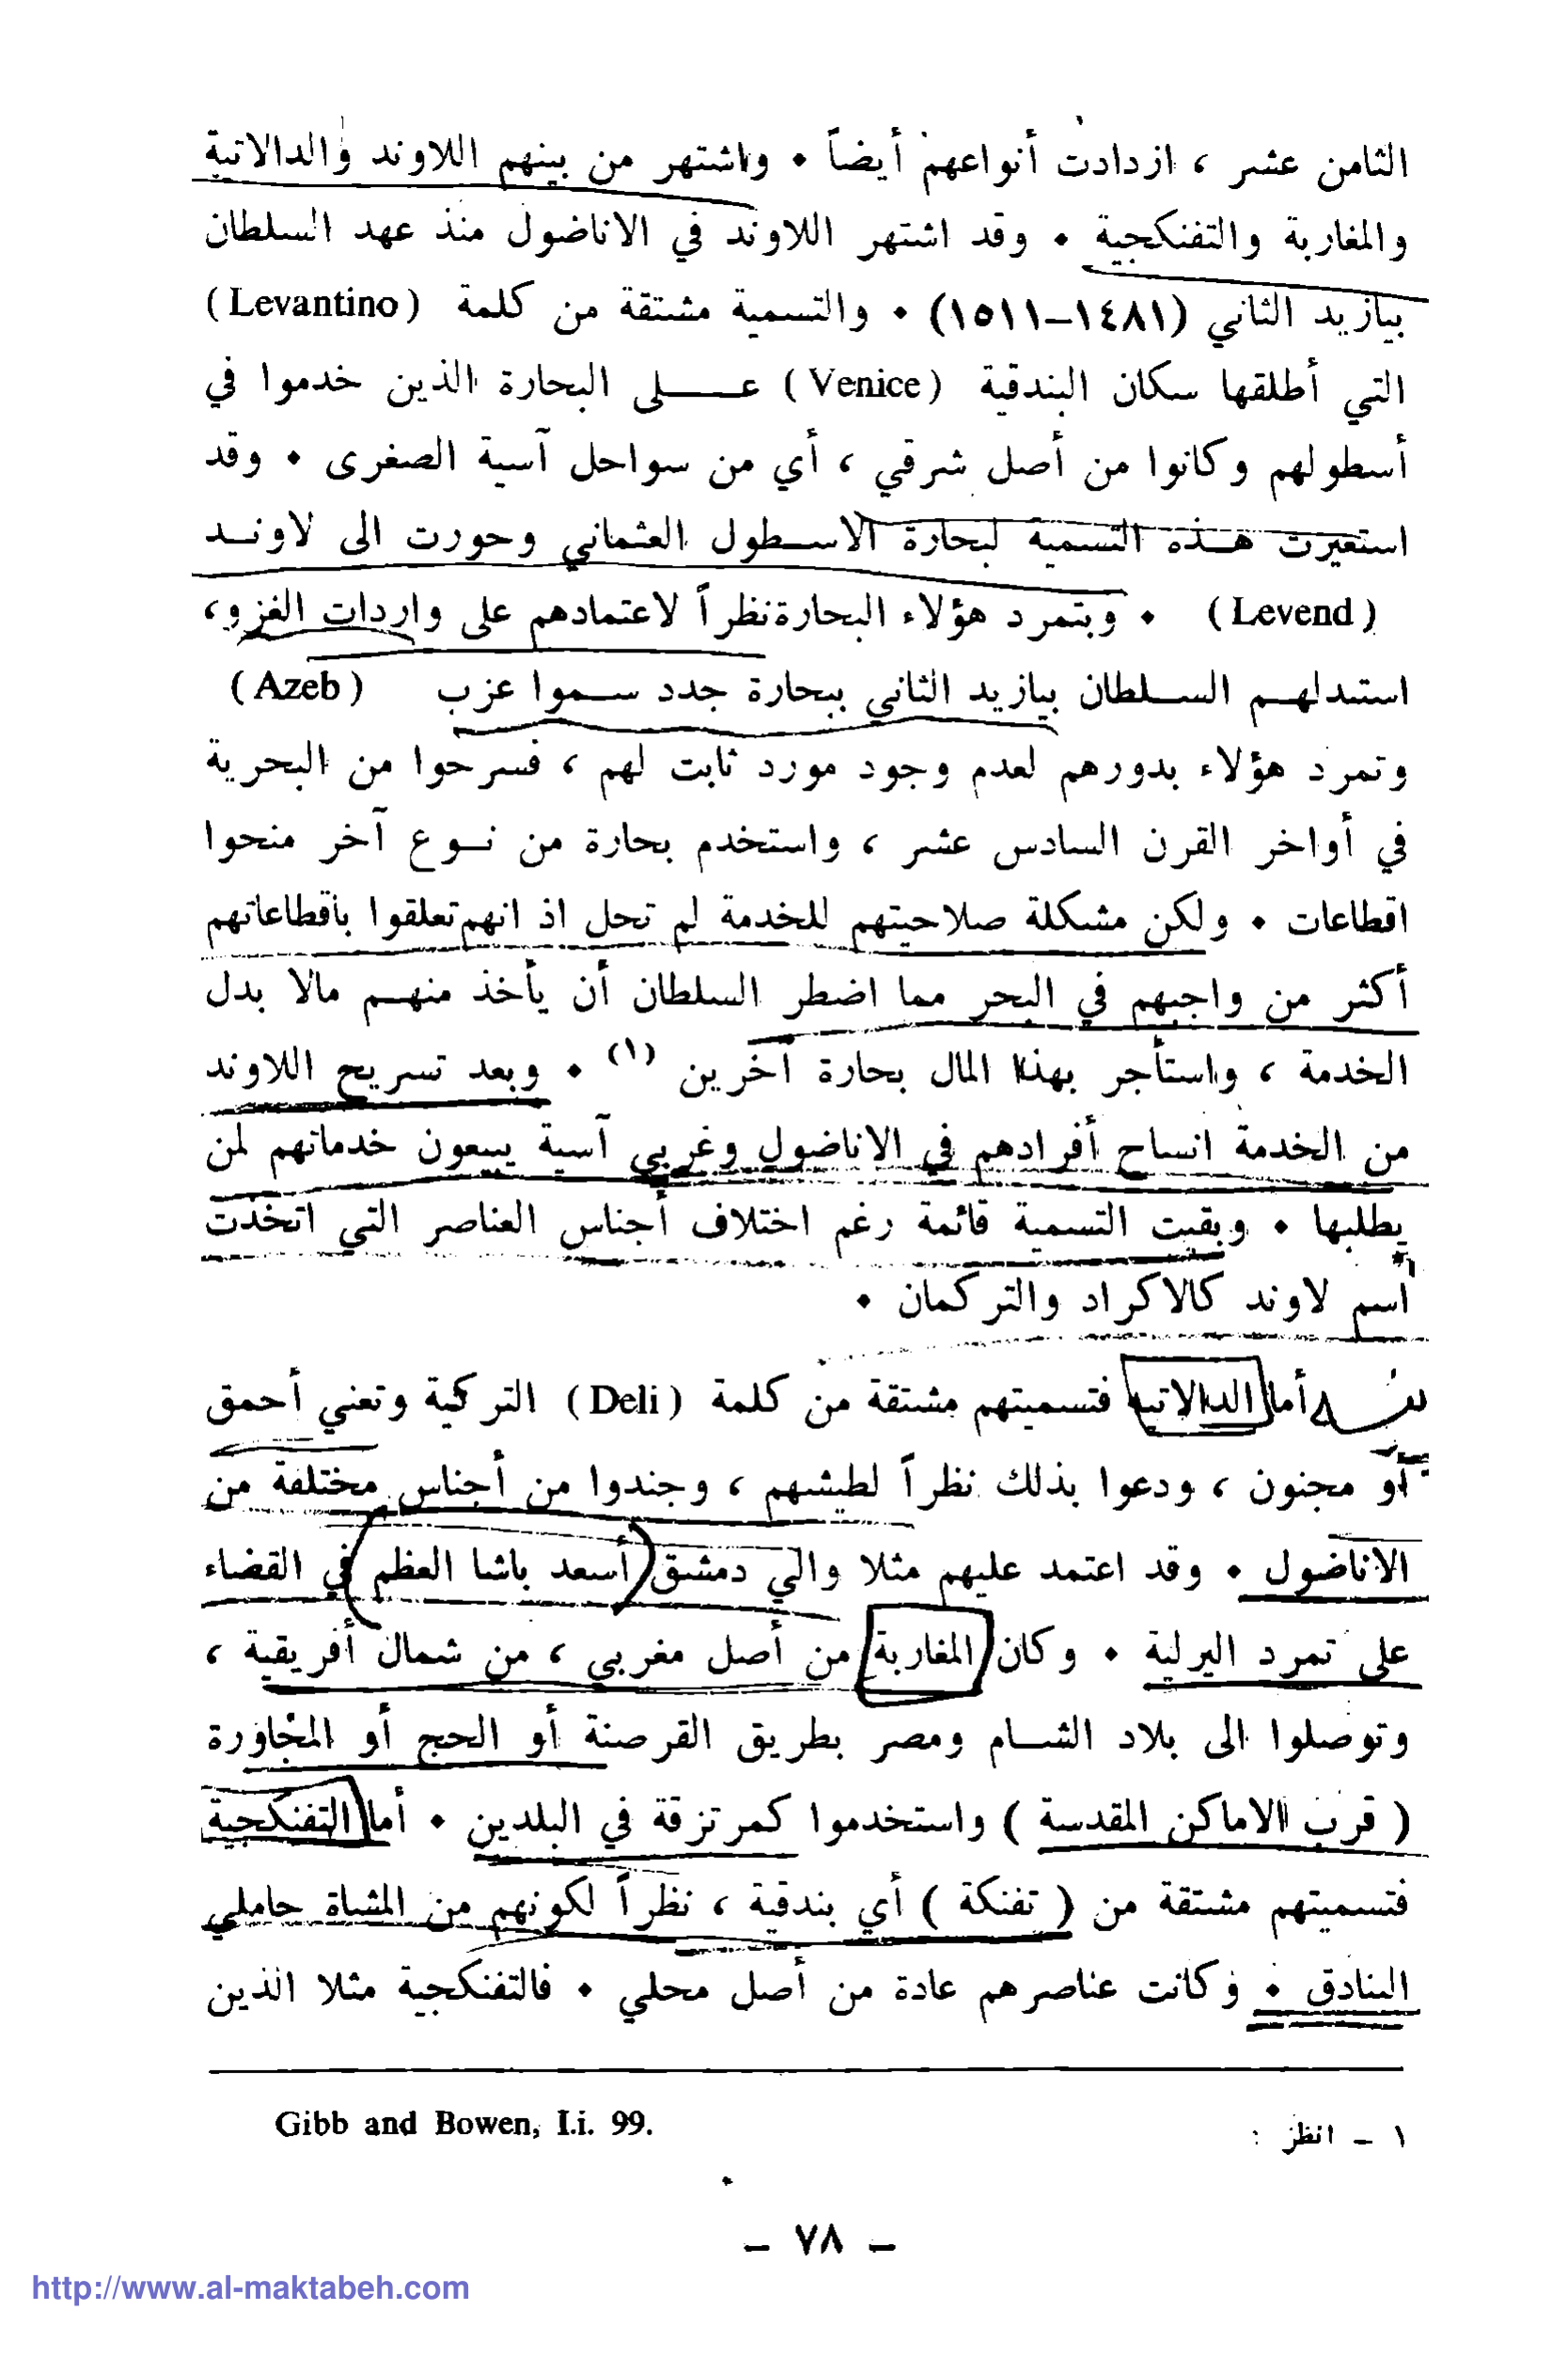 الثامن عشر ، ازدادت أنواعهم أيضاً • واشتهر من بينهم اللاوند والدالاتية
والمغاربة والتفنكجية • وقد اشتهر اللاوند في الاناضول منذ عهد السلطان
بيازيد الثاني (١٤٨١–١٥١١) • والتسمية مشتقة من كلمة (Levantino)
التي أطلقها سكان البندقية (Venice) عـــلى البحارة الذين خدموا في
أسطولهم وكانوا من أصل شرقي ، أي من سواحل آسية الصغرى • وقد
استعيرت هـذه التسمية لبحارة الاسـطول العثماني وحورت الى لاونـد
(Levend) • وبتمرد هؤلاء البحارة نظراً لاعتمادهم على واردات الغزو،
استبدلهـم السـلطان بيازيد الثاني ببحارة جدد سـموا عزب (Azeb)
وتمرد هؤلاء بدورهم لعدم وجود مورد ثابت لهم ، فسرحوا من البحرية
في أواخر القرن السادس عشر ، واستخدم بحارة من نـوع آخر منحوا
اقطاعات • ولكن مشكلة صلاحيتهم للخدمة لم تحل اذ انهم تعلقوا باقطاعاتهم
أكثر من واجبهم في البحر مما اضطر السلطان أن يأخذ منهـم مالا بدل
الخدمة ، واستأجر بهذا المال بحارة آخرين (١) • وبعد تسريح اللاوند
من الخدمة انساح أفرادهم في الاناضول وغربي آسية يبيعون خدماتهم لمن
يطلبها • وبقيت التسمية قائمة رغم اختلاف أجناس العناصر التي اتخذت
اسم لاوند كالاكراد والتركمان •
أما الدالاتية فتسميتهم مشتقة من كلمة (Deli) التركية وتعني أحمق
أو مجنون ، ودعوا بذلك نظراً لطيشهم ، وجندوا من أجناس مختلفة من
الاناضول • وقد اعتمد عليهم مثلا والي دمشق (أسعد باشا العظم) في القضاء
على تمرد اليرلية • وكان المغاربة من أصل مغربي ، من شمال أفريقية ،
وتوصلوا الى بلاد الشـام ومصر بطريق القرصنة أو الحج أو المجاورة
( قرب الاماكن المقدسة ) واستخدموا كمرتزقة في البلدين • أما التفنكجية
فتسميتهم مشتقة من ( تفنكة ) أي بندقية ، نظراً لكونهم من المشاة حاملي
البنادق • وكانت عناصرهم عادة من أصل محلي • فالتفنكجية مثلا الذين
١ – انظر : Gibb and Bowen, I.i. 99.
– ٧٨ –
http://www.al-maktabeh.com